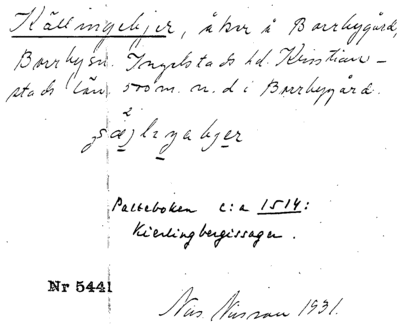 Källingebjer, åker å Borrbygård,
Borrbysn. Ingelstads hd. Kristian-
stads län, 500 m. n. d i Borrbygård.
Palteboken c:a 1514:
Kierlingbergissager.
Nr 5441
Nils Nilsson 1931.